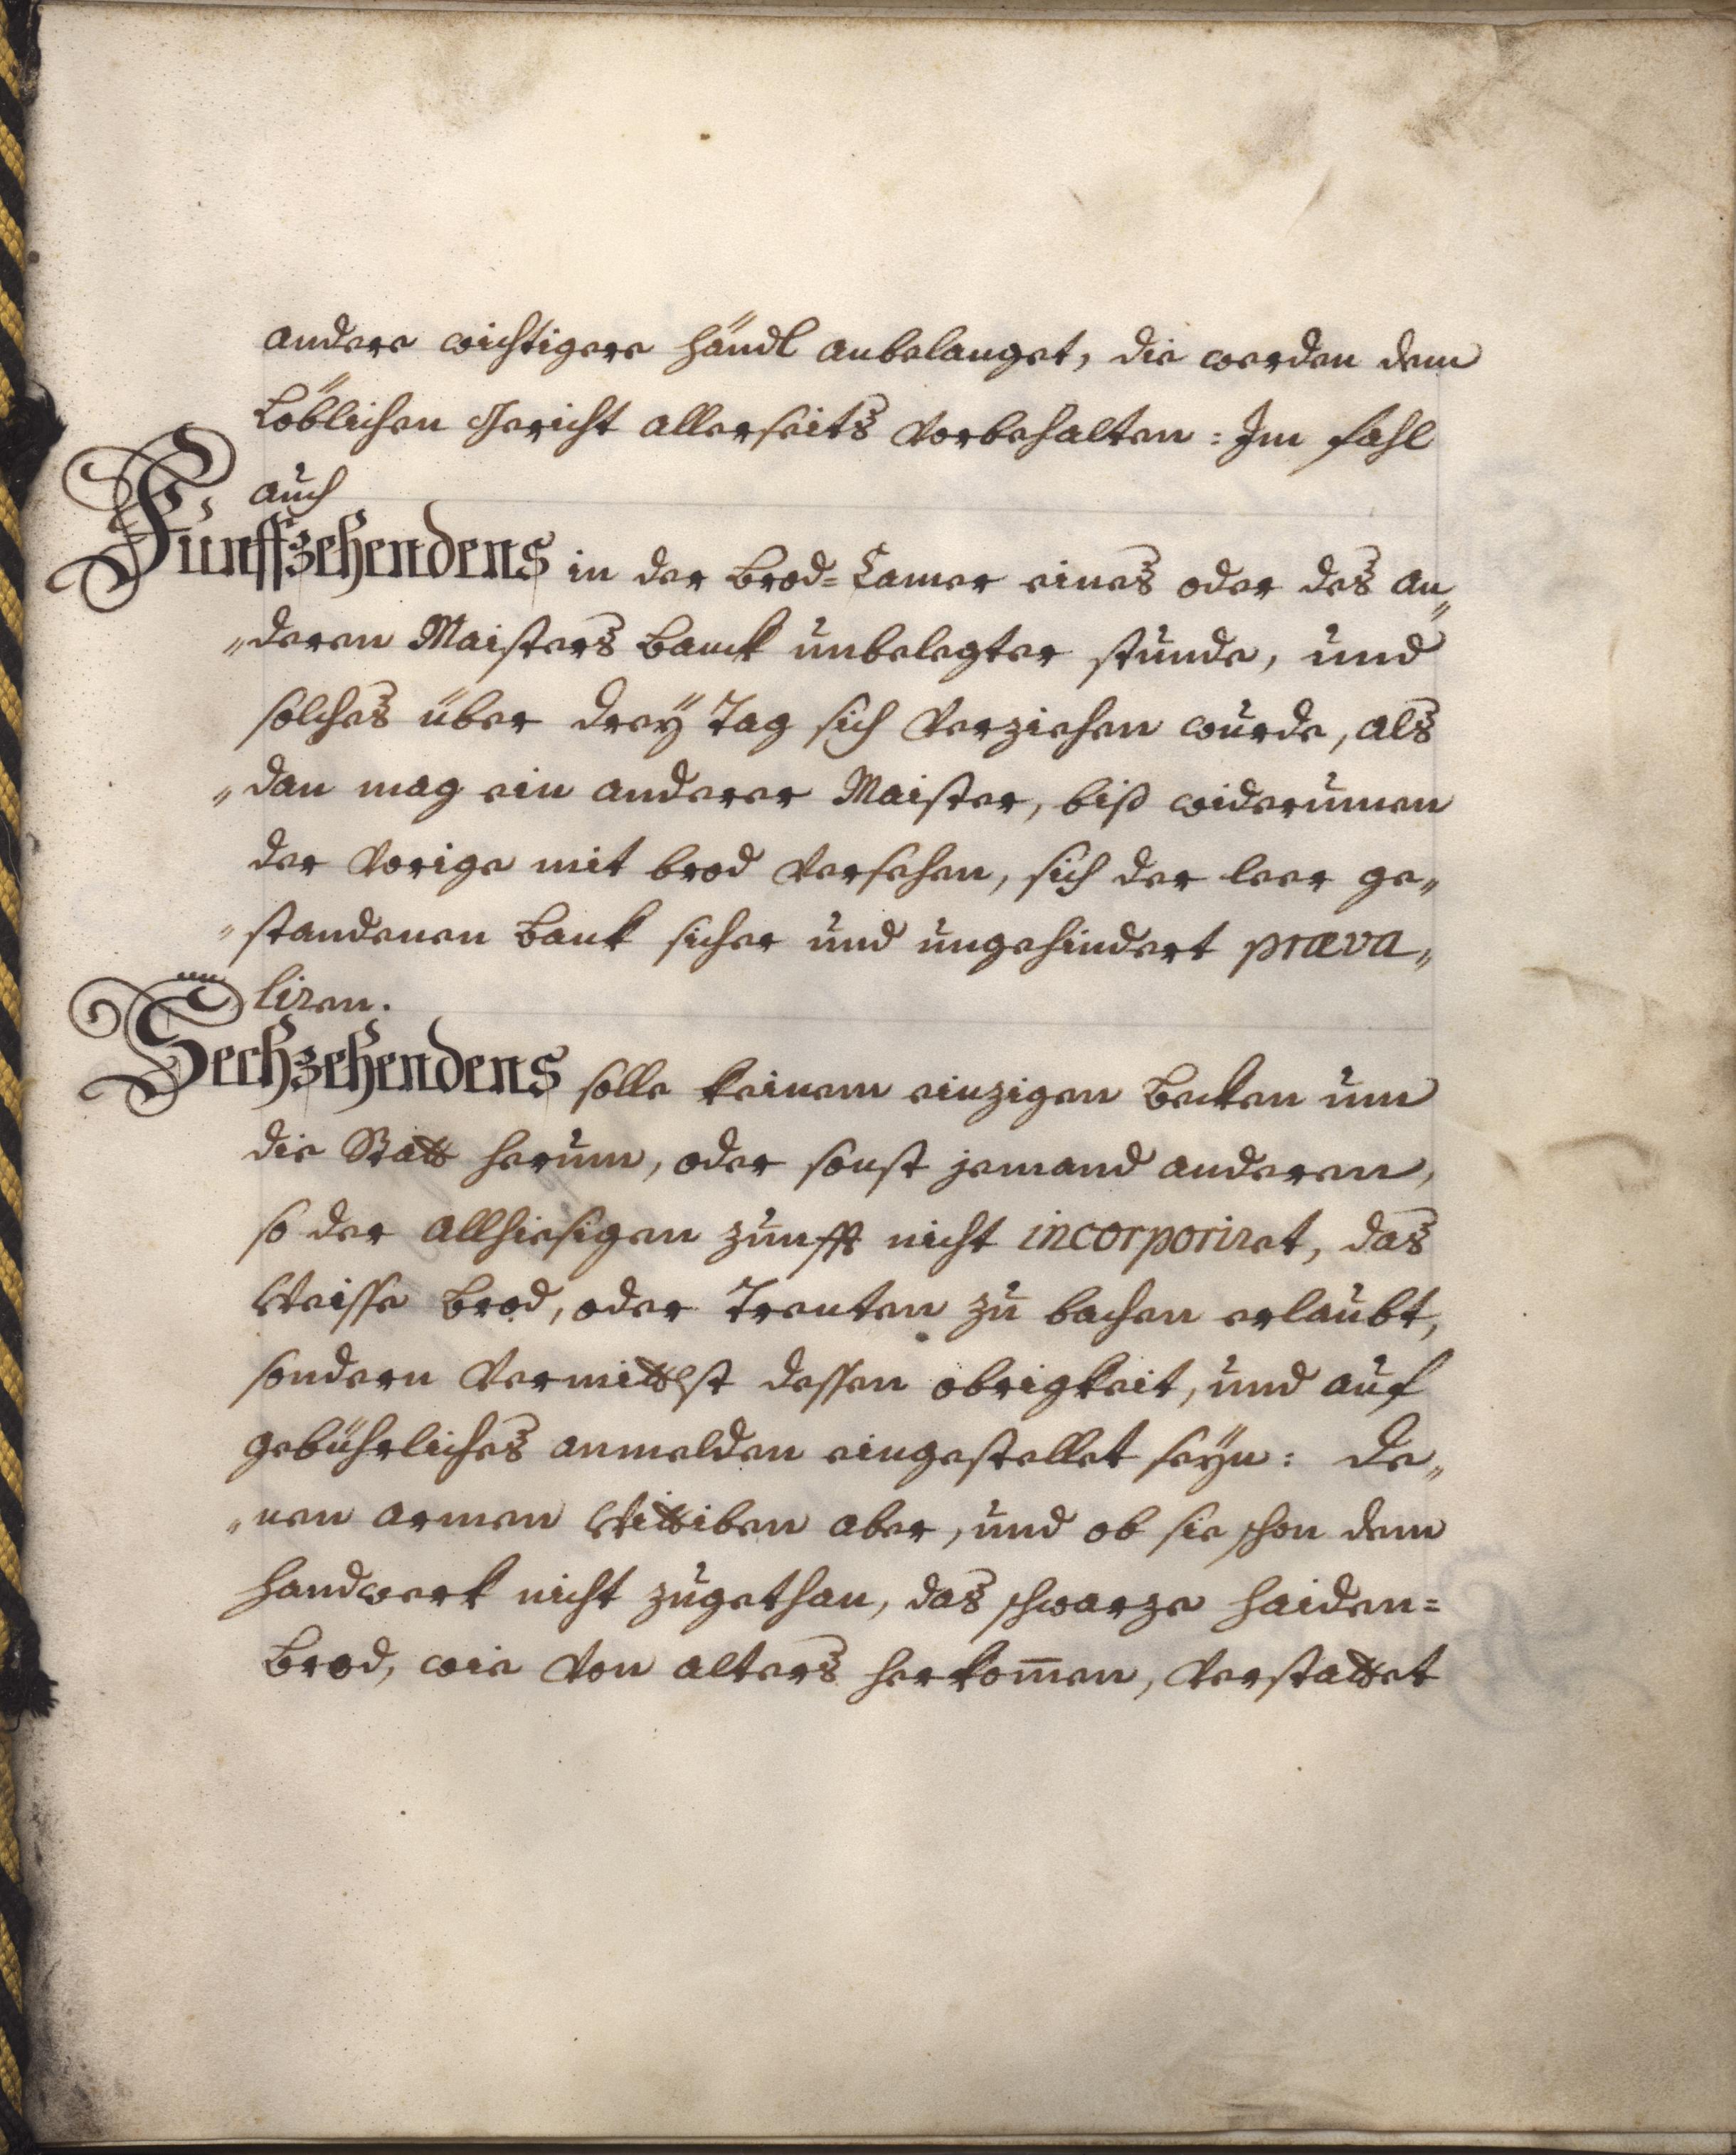 andere wichtigere händl anbelanget, die werden dem
Löblichen Gericht allerseits vorbehalten: Im fahl
auch
Fünffzehendens in der Brod=Camer eines oder des an„
„deren Maisters Banck unbelegter stunde, und
solches über dreÿ Tag sich verziehen wurde, als
„dan mag ein anderer Maister, biß widerumen
der vorige mit brod versehen, sich der leer ge„
„standenen Bank sicher und ungehindert præva„
liren.
Sechzehendens solle keinem einzigen Becken um
die Statt herum, oder sonst jemand anderen,
so der allhiesigen zunfft nicht incorporiret, das
Weisse Brod, oder Trenten zu bachen erlaubt,
sondern vermittlst dessen obrigkeit, und auf
gebührliches anmelden eingestellet seÿn: de„
„nen armen Wittiben aber, und ob sie schon dem
handwerk nicht zugethan, das schwarze haiden=
Brod, wie von alters herkom̄en, verstattet